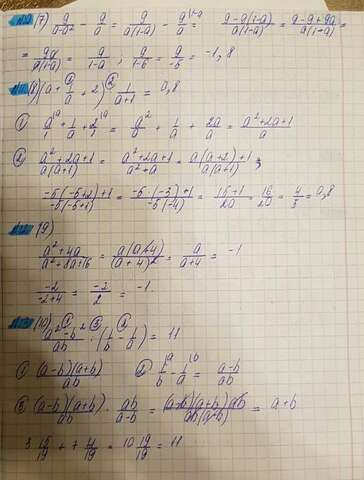 №2 (7) 9/(a-a²) - 9/a = 9/(a(1-a)) - 9/a = (9-9(1-a))/(a(1-a)) = (9-9+9a)/(a(1-a)) =
= 9a/(a(1-a)) = 9/(1-a) ; 9/(1-6) = 9/-5 = -1,8
(8) (a + 1/a + 2) · 1/(a+1) = 0,8
① a/1 + 1/a + 2/1 = a²/a + 1/a + 2a/a = (a²+2a+1)/a
② (a²+2a+1)/(a(a+1)) = (a²+2a+1)/(a²+a) = (a(a+2)+1)/(a(a+1)) ;
(-5(-5+2)+1)/(-5(-5+1)) = (-5(-3)+1)/(-5(-4)) = (15+1)/20 = 16/20 = 4/5 = 0,8
(9)
(a²+4a)/(a²+8a+16) = (a(a+4))/((a+4)²) = a/(a+4) = -1
-2/(-2+4) = -2/2 = -1
(10)
(a²-b²)/ab : (1/b - 1/a) = 11
① ((a-b)(a+b))/ab ② 1/b - 1/a = (a-b)/ab
③ ((a-b)(a+b))/ab · ab/(a-b) = ((a-b)(a+b)ab)/(ab(a-b)) = a+b
3 15/19 + 7 4/19 = 10 19/19 = 11